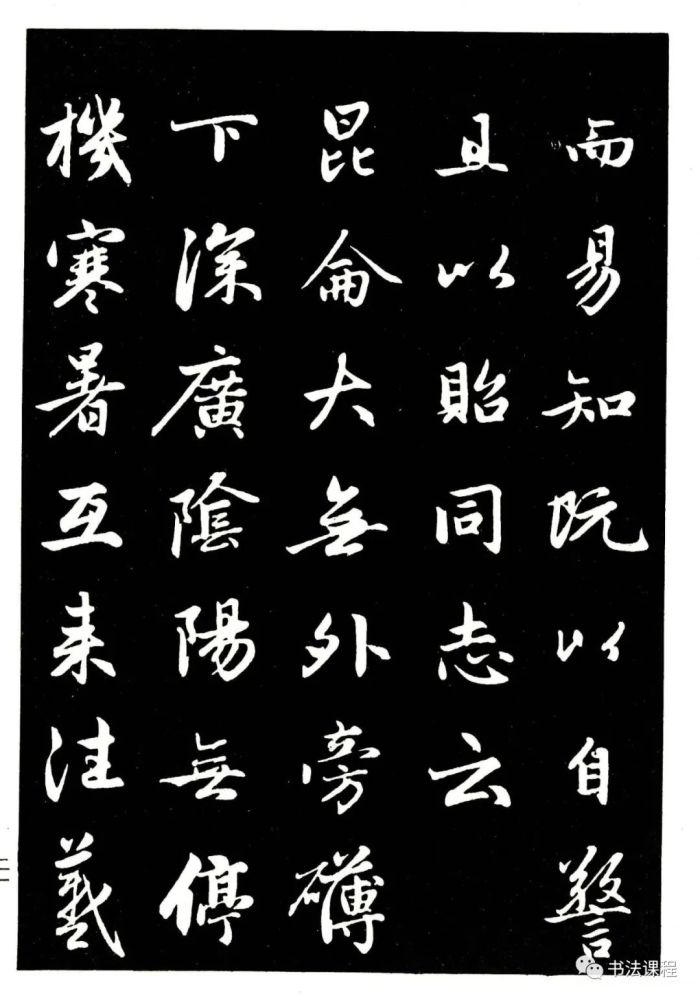 而易知既以自警
且以貽同志云
昆侖大無外旁礴
下深廣陰陽無停
機寒暑互来往羲
书法课程